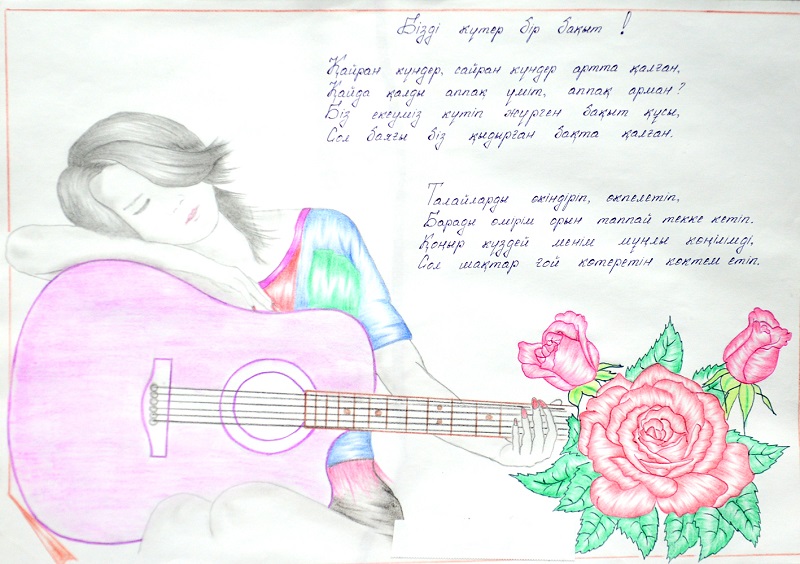 Бізді күтер бір бақыт !
Қайран күндер, сайран күндер артта қалған,
Қайда қалды аппақ үміт, аппақ арман?
Біз екеуміз күтіп жүрген бақыт құсы,
Сол баяғы біз қыдырған бақта қалған.
Талайларды өкіндіріп, өкпелетіп,
Барады өмірім орын таппай текке кетіп.
Қоңыр күздей менім мұңлы көңілімді,
Сол шақтар ғой көтеретін көктем етіп.